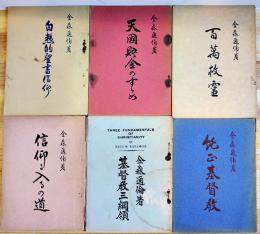 金森通倫著
白熱的聖書信仰
金森通倫著
天國貯金のすゝめ
金森通倫著
百萬救靈
金森通倫著
信仰に入るの道
THREE FUNDAMENTALS
OF
CHRISTIANITY
BY
PAUL M. KANAMORI
金森通倫著
基督教三綱領
金森通倫著
純正基督教